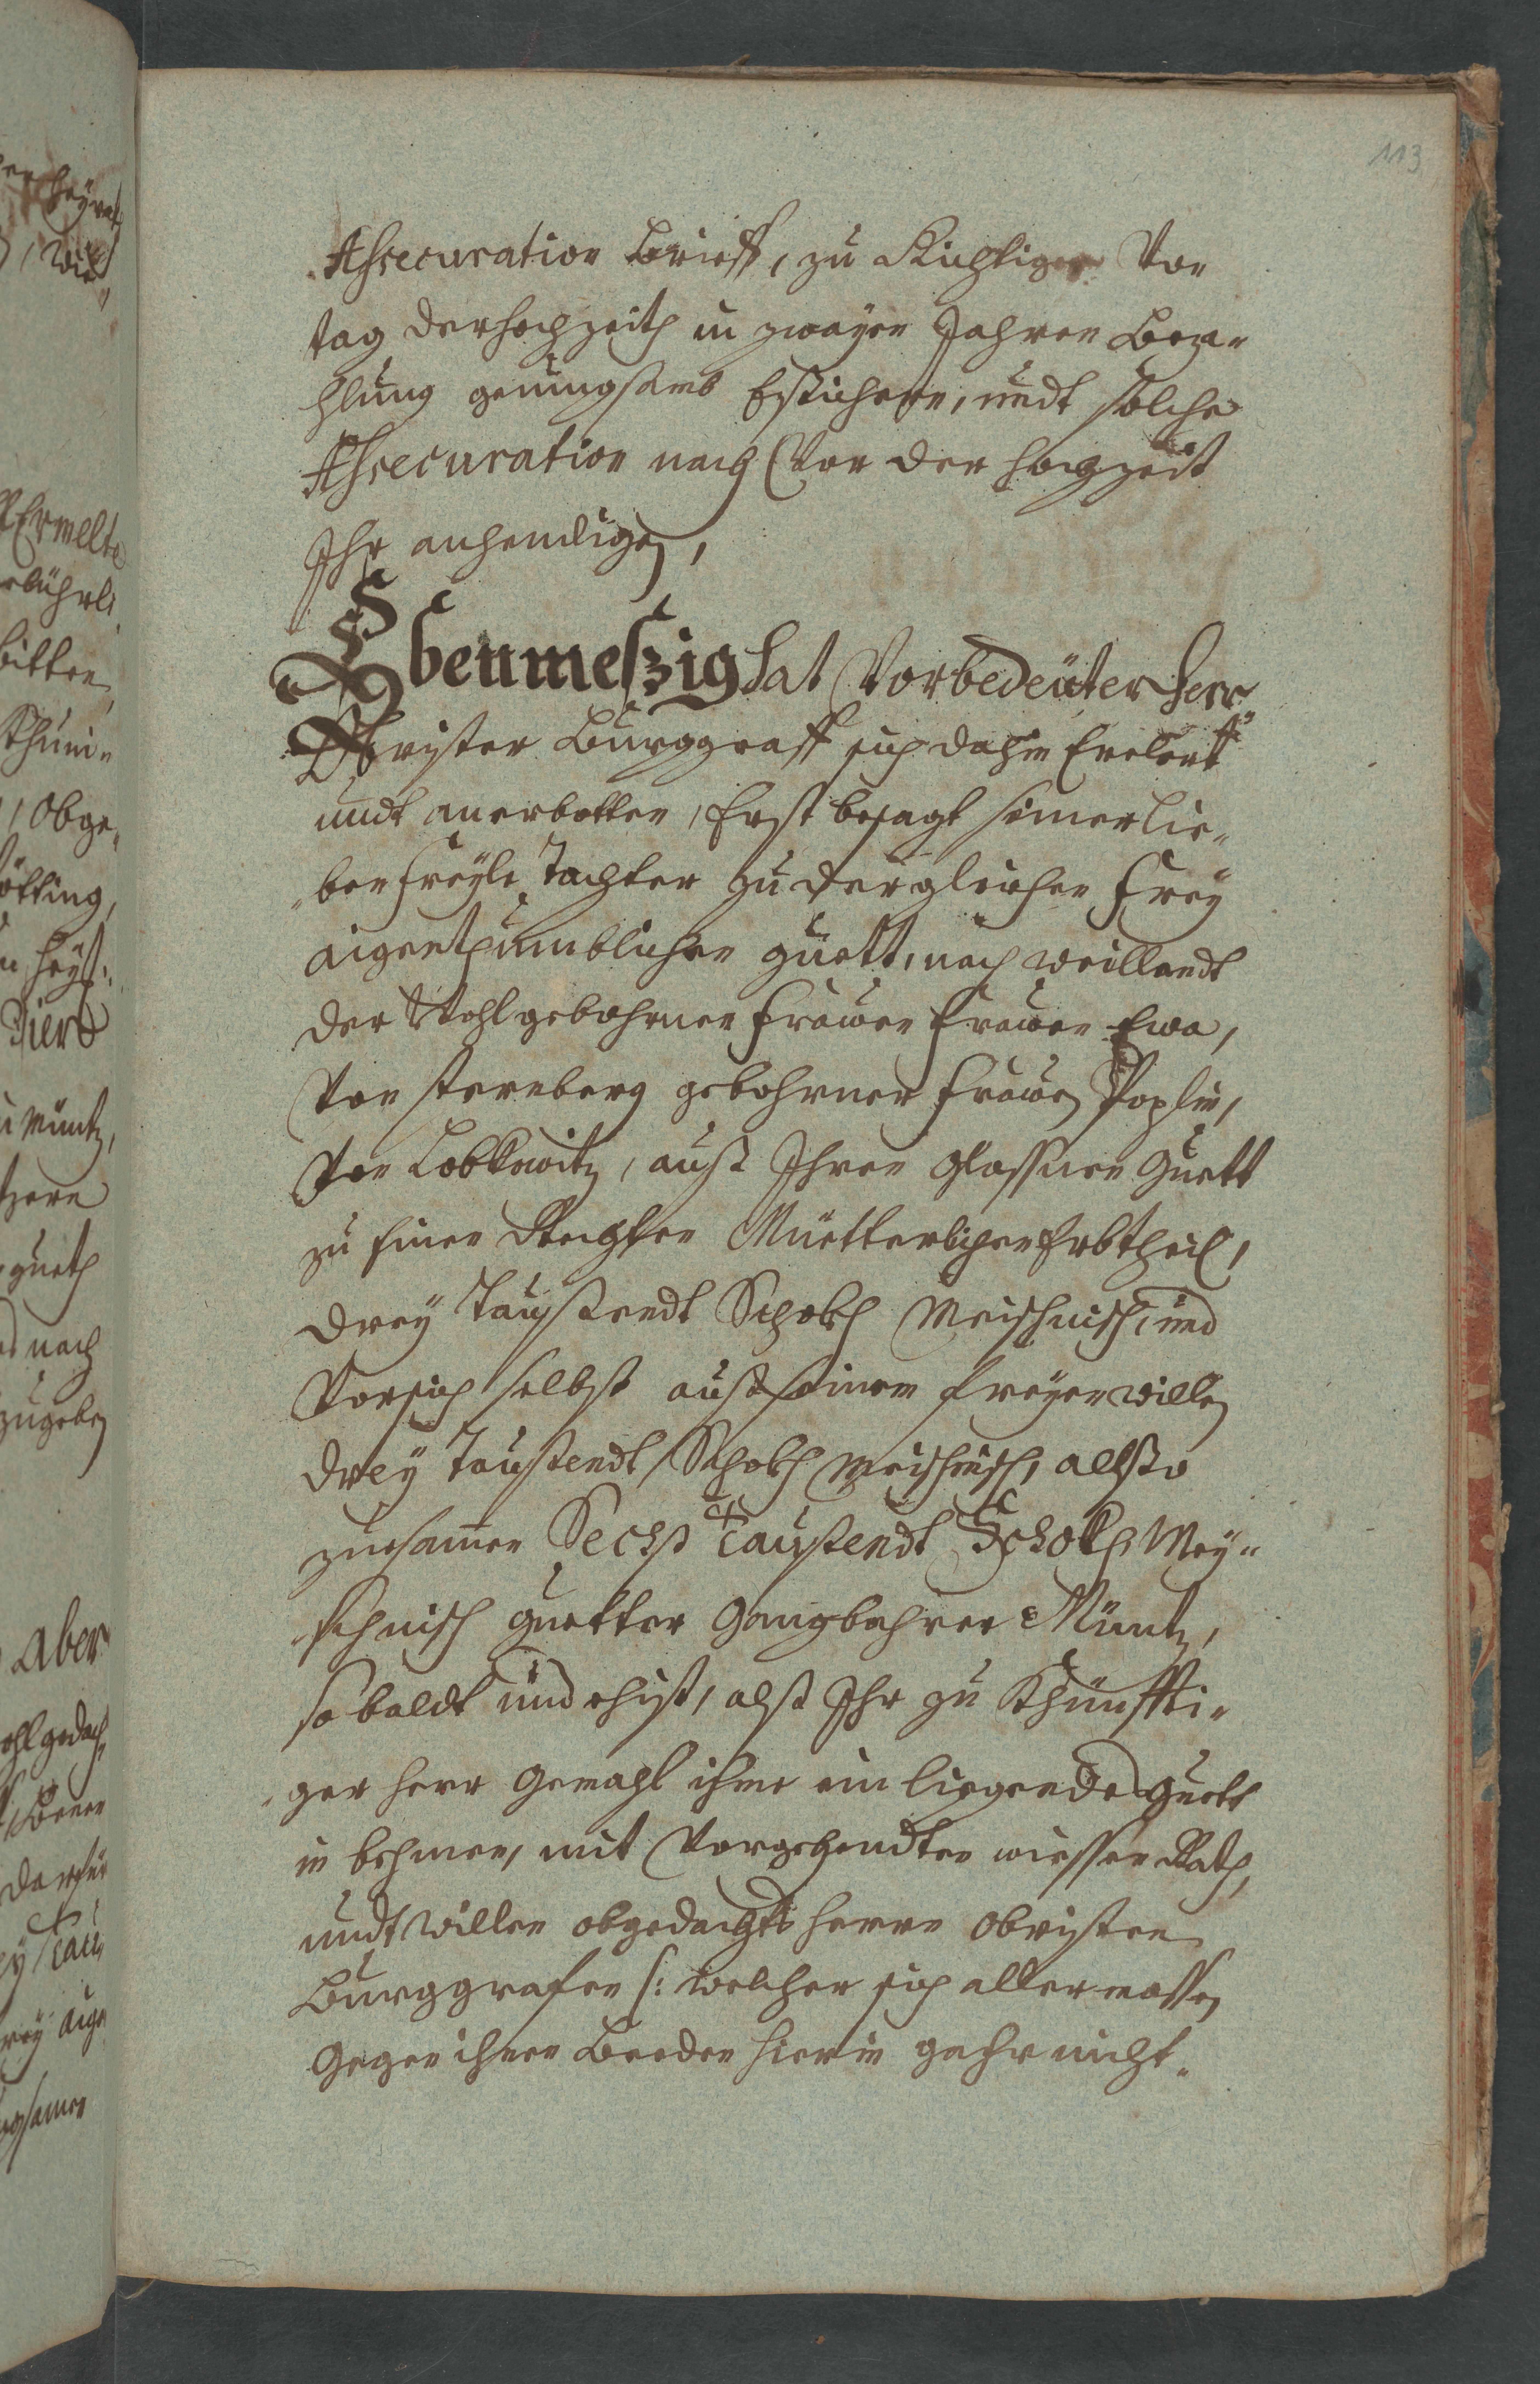 113
Assecuration Brieff, zu Richtiger Von
tag der hochzeith in zwayen Jahren Beza-
hlung genungsamb hstichern, undt solche
Assecuration noch Vor der hochzeit
Ihr anhendigen,
Ebenmeszig hat Vorbedeüter Herr
Obrister Burggraff sich dahin Erclert
undt anerbotten, Erst besagt seiner lie-
ben freyle Tochter zu dergleichen frey
aigenthumblichen guett, nach weillandt
der Wohlgebohrnen frawen frawen Ewa,
Von sternberg gebohrner frawen Poplin,
Von Lobkowitz, auß Ihren glassnen Guett
zu einer Rechten Müetterlichen Erbtheil,
drey Taußendt Schokh Meischnisch, und
Vorsich selbst auß seinem freyen willen
drey Taußendt Schokh Meischnisch, allßo
zuesamen Sechs Taußendt Schokh Mey-
schnisch guetter Gangbahrer Müntz,
so baldt und ehist, alß Ihr zu Khünffti-
ger herr Gemahl ihme ein liegende Guett
in behmen, mit Vorgehendten wissen Rath,
undt willen obgedachts herrn obristen
Burggrafen /: welcher sich aller massen
gegen ihnen Beeden hierin gahr nicht